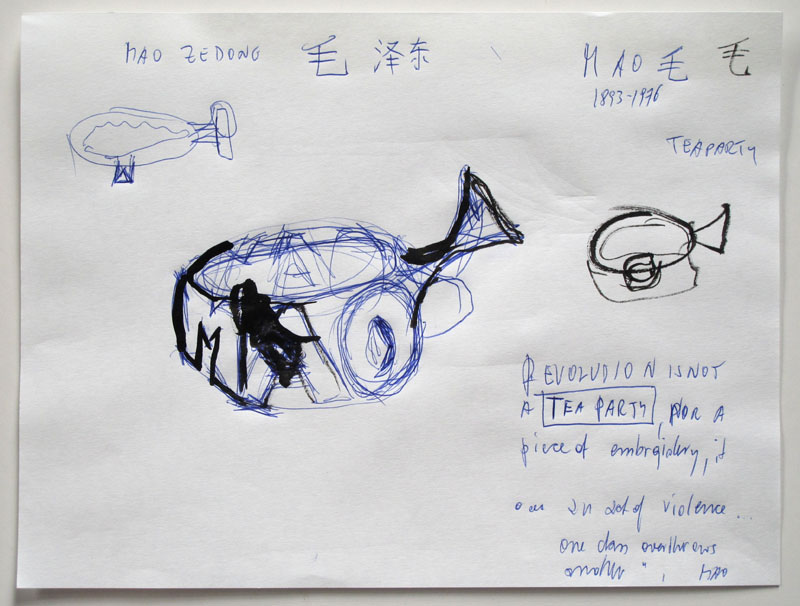 MAO ZEDONG 毛 泽东
MAO 毛 毛
1893-1976
TEAPARTY
M
REVOLUDION IS NOT
A TEA PARTY, NOR A
piece of embroidery, it
an act of violence...
one class overthrows
another", MAO